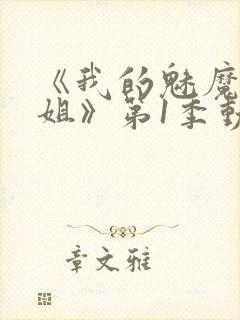 《我的魅魔
姐》第1季動
章文雅